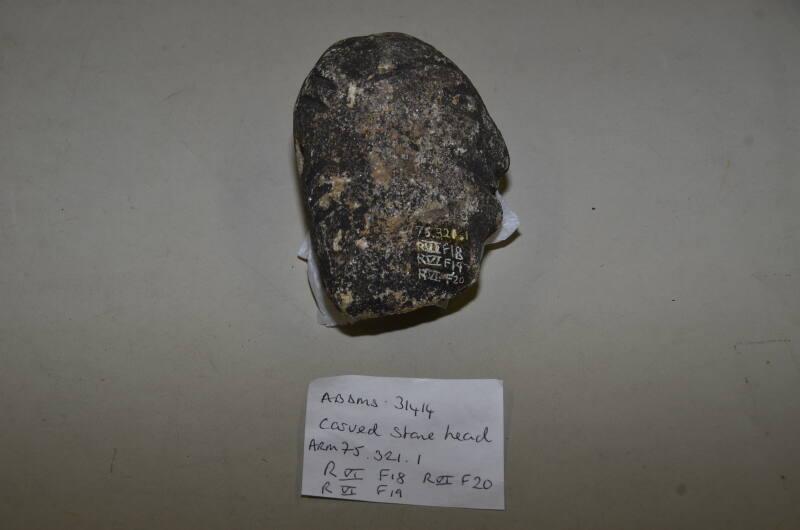 75.321.1
RVI F18
RVI F19
RVI F20
ABDMS. 31414
Carved stone head
ARM75.321.1
R VI F18 R VI F20
R VI F19